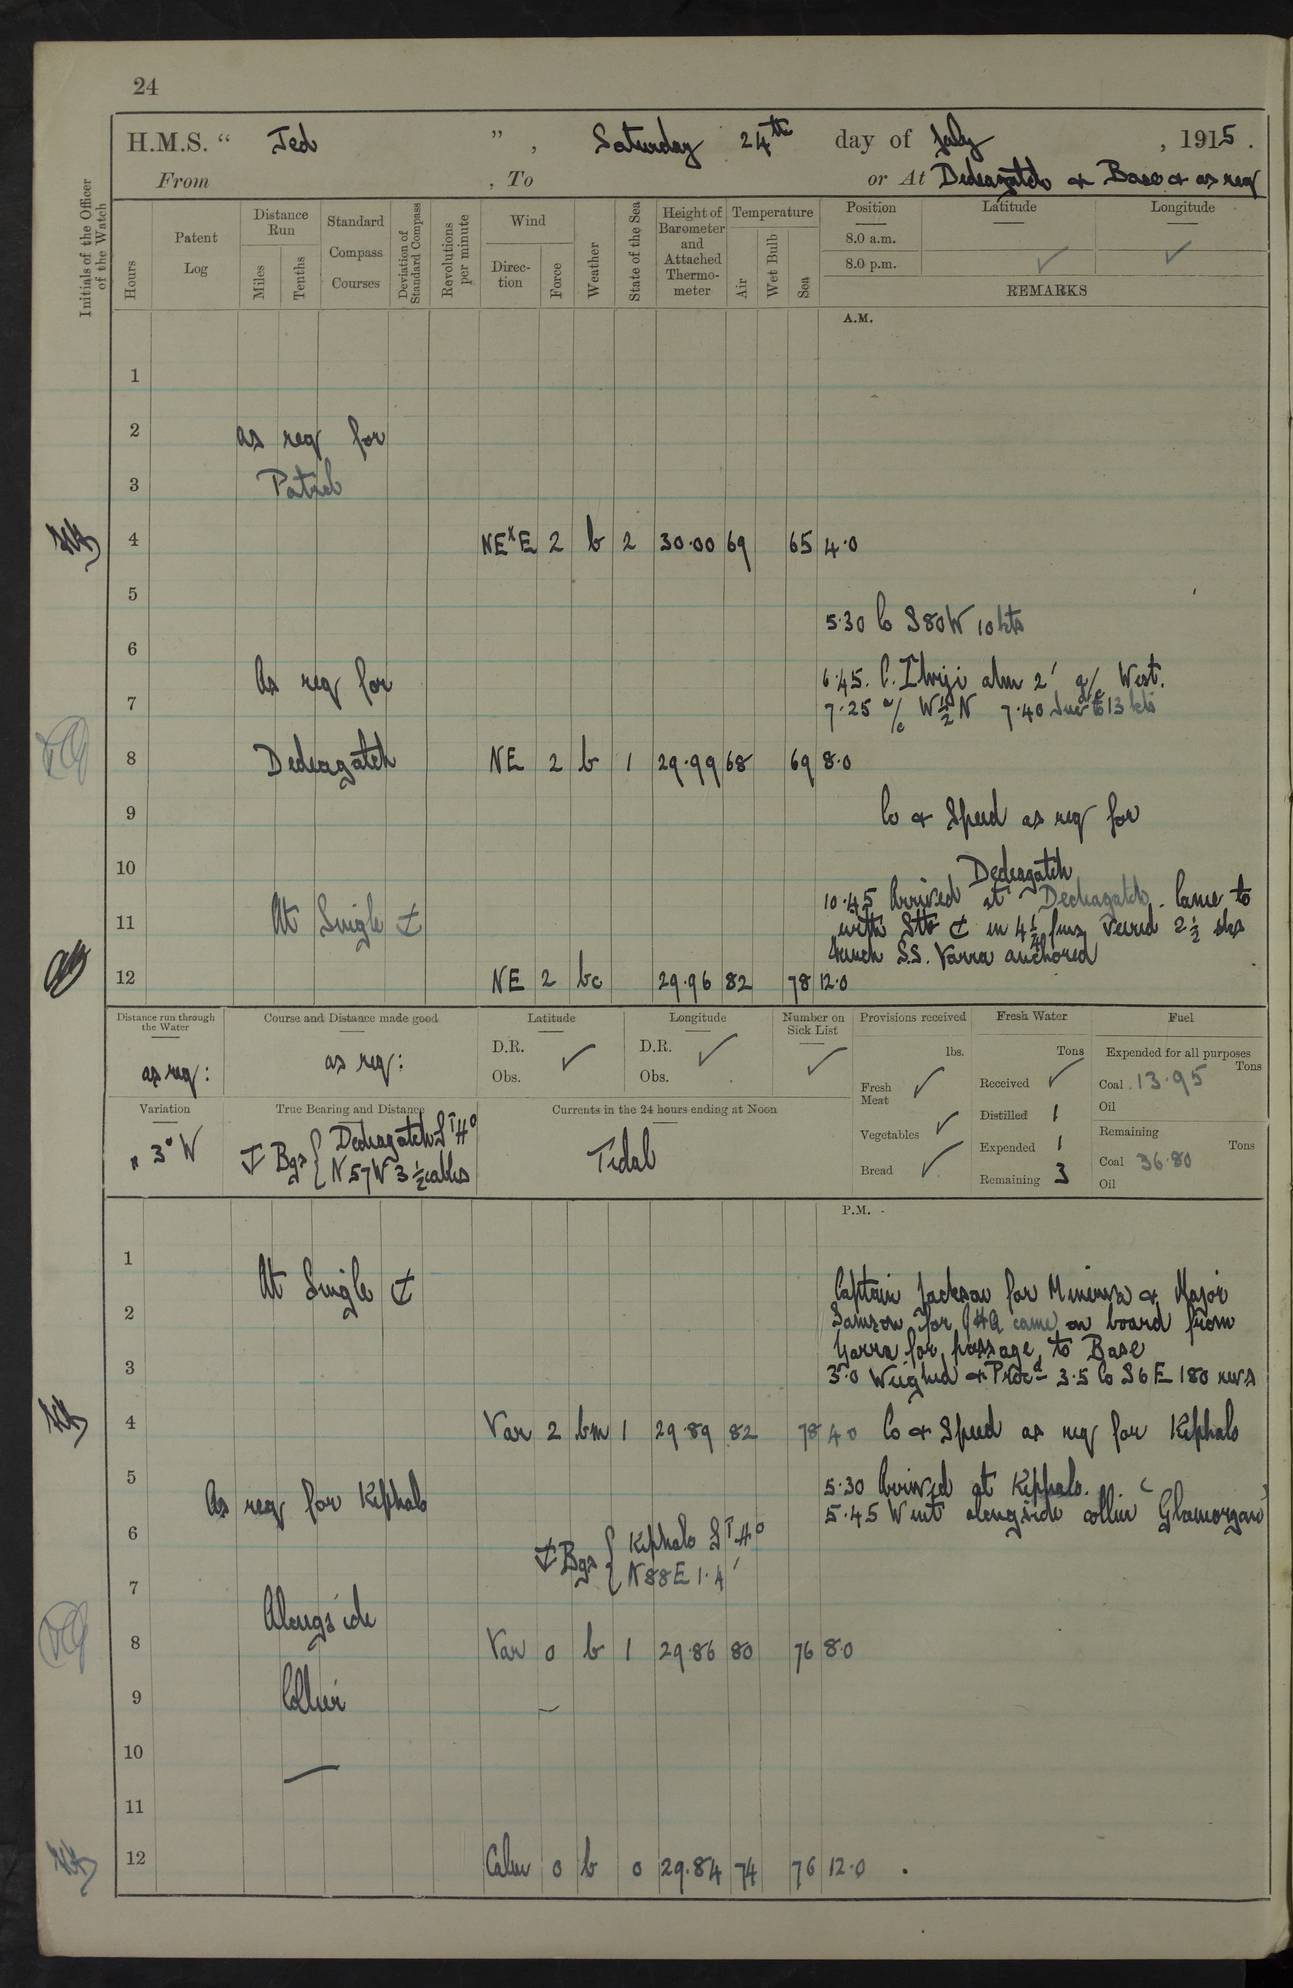 24
H.M.S. “ Jed ” , Saturday 24th day of July , 1915 .
From , To or At Dedeagatch & Base & as req
Initials of the Officer of the Watch
Hours
Patent Log
Distance Run
Miles
Tenths
Standard Compass Courses
Deviation of Standard Compass
Revolutions per minute
Wind
Direction
Force
Weather
State of the Sea
Height of Barometer and Attached Thermometer
Temperature
Air
Wet Bulb
Sea
Position Latitude Longitude
8.0 a.m.
8.0 p.m. ✓ ✓
REMARKS
A.M.
1
2 as req for
3 Patrol
4 NExE 2 b 2 30.00 69 65 4.0
5
5.30 Co S80W 10kts
6
As req for 6.45. alm 2' a/c West.
7 7.25 a/c W½N 7.40 to 13 kts
8 Dedeagatch NE 2 b 1 29.99 68 69 8.0
9 Co & Speed as req for
10 Dedeagatch
10.45 Arrived at Dedeagatch. Came to
11 At Single with Stb in 4½ fms veered 2½ shs
S.S. Yarra anchored
12 NE 2 bc 29.96 82 78 12.0
Distance run through the Water
as req:
Course and Distance made good
as req:
Latitude
D.R. ✓
Obs.
Longitude
D.R. ✓
Obs.
Number on Sick List
✓
Provisions received
lbs.
Fresh Meat ✓
Vegetables ✓
Bread ✓
Fresh Water
Tons
Received ✓
Distilled 1
Expended 1
Remaining 3
Fuel
Expended for all purposes
Tons
Coal 13.95
Oil
Remaining
Tons
Coal 36.80
Oil
Variation
3° W
True Bearing and Distance
Bgs { Dedeagatch Lt Ho
N57W 3½ cables
Currents in the 24 hours ending at Noon
Tidal
P.M.
1 At Single
Captain Jackson for Minerva & Major
2 Samson for GHQ came on board from
Yarra for passage to Base
3 3.0 Weighed & Procd 3.5 Co S6E 180 revs
4 Var 2 bm 1 29.89 82 78 4.0 Co & Speed as req for Kephalo
5 As req for Kephalo 5.30 Arrived at Kephalo.
5.45 Went alongside collier ‘Glamorgan’
6 Bgs { Kephalo Lt Ho
N88E 1.4'
7 Alongside
8 Var 0 b 1 29.86 80 76 8.0
9 Collier
10
11
12 Calm 0 b 0 29.84 74 76 12.0